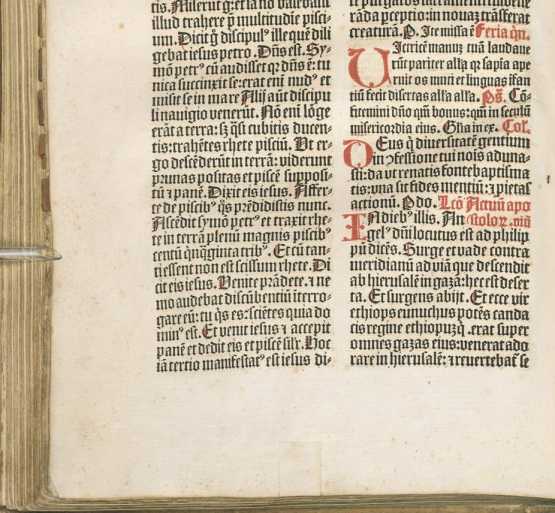 tis. Miserūt g̃: et iā nō valebant
illud trahere p̄ multitudīe pisci-
um. Dicit g̃ discipulꝰ ille quē dili
gebat iesus petro. Dñs est. Sy-
mō petrꝰ cū audisset qꝛ dñs ē: tu
nica succinxit se: erat eni̅ nudꝰ et
misit se in mare. Alij aūt discipu
li nauigio venerūt. Nō eni̅ lōge
erāt a terra: sꝫ q̄si cubitis ducen-
tis: trahētes rhete pisciū. Ut er-
go descēderūt in terrā: viderunt
prunas positas et piscē supposi-
tū ⁊ panē. Dixit eis iesus. Affer-
te de piscibꝰ qͦs prēdidistis nunc.
Ascēdit symō petrꝰ et traxit rhe-
te in terrā plenū magnis piscibꝰ
centū q̄nq̄ginta tribꝰ. Et cū tan-
ti essent non est scissum rhete. Di
cit eis iesus. Venite prādete. ⁊ ne
mo audebat discūbentiū īterro-
gare eū: tu qͥs es: sciētes quia do
minꝰ est. Et venit iesus ⁊ accepit
panē et dedit eis et piscē silr. Hoc
iā tertio manifestatꝰ est iesus di-
rāda p̄ceptio: in nouā trāsferat
creaturā. P. Ite missa ē. Feria qn̄.
Uictricē manū tuā laudaue
rūt pariter all'a qꝛ sapia ape
ruit os muti et linguas ifan
tiū fecit disertas all'a all'a. Ps̄. Cō-
fitemini dño qm̄ bonus: qm̄ in seculū
misericordia eius. Gl'ia in ex. Col'.
Deus q̇ diuersitatē gentium
in ꝯfessione tui nois aduna-
sti: da vt renatis fonte baptisma
tis: vna sit fides mentiū: ⁊ pietas
actionū. P do. Lcō Actuū apo
In diebꝰ illis. An- stoloꝝ. viii
gelꝰ dñi locutus est ad philip
pū dicēs. Surge et vade contra
meridianū ad viā que descendit
ab hierusalē in gazā: hec est deser
ta. Et surgens abijt. Et ecce vir
ethiops eunuchus potēs canda
cis regine ethiopuꝫ q̇ erat super
omnes gazas eius: venerat ado
rare in hierusalē: ⁊ reuertebat̄ se